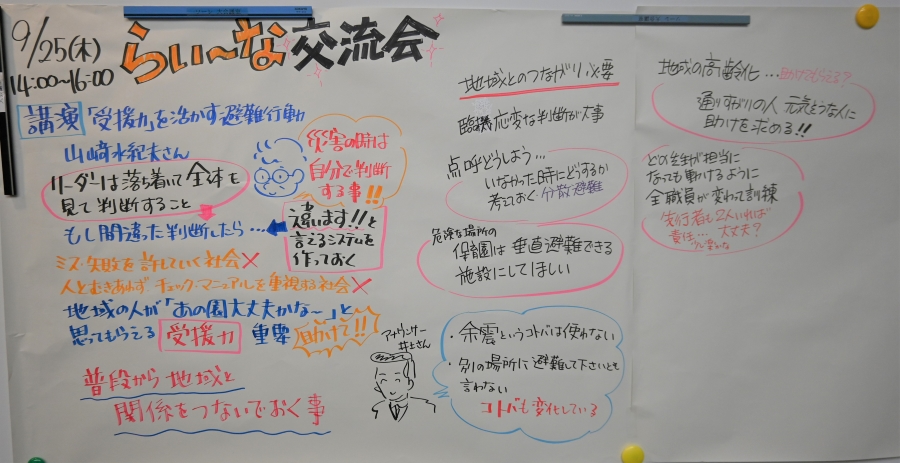 9/25(木)
14:00〜16:00
らい〜な交流会
講演「受援力」を活かす避難行動
山﨑水紀夫さん
災害の時は
自分で判断
する事!!
リーダーは落ち着いて全体を
見て判断すること
もし間違った判断したら…
違います!!と
言えるシステムを
作っておく
ミス・失敗を許していく社会×
人とむきあわずチェック・マニュアルを重視する社会×
地域の人が「あの園大丈夫かな〜」と
思ってもらえる 受援力 重要 助けて!!
普段から地域と
関係をつないでおく事
地域とのつながり必要
臨機応変な判断が大事
点呼どうしよう…
いなかった時にどうするか
考えておく 分散避難
危険な場所の
保育園は垂直避難できる
施設にしてほしい
アナウンサー
井上さん
・余震というコトバは使わない
・別の場所に避難して下さいとも
言わない
コトバも変化している
地域の高齢化…助けてもらえる?
通りすがりの人 元気そうな人に
助けを求める!!
どの先生が担当に
なっても動けるように
全職員が変わって訓練
実行者も2人いれば
責任… 大丈夫?